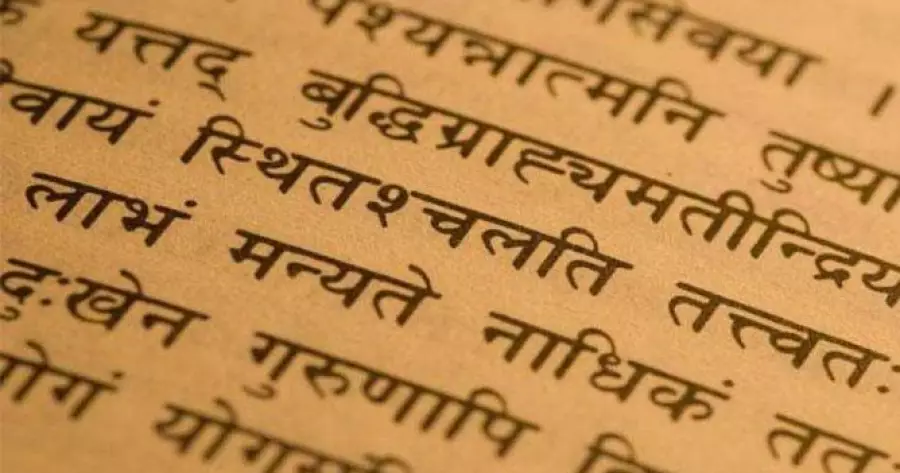 गसेवया ।
पश्यन्नात्मनि तुष्य
यत्तद् बुद्धिग्राह्यमतीन्द्रिय
वायं स्थितश्चलति तत्त्वतः
लाभं मन्यते नाधिकं तत
दुःखेन गुरुणापि